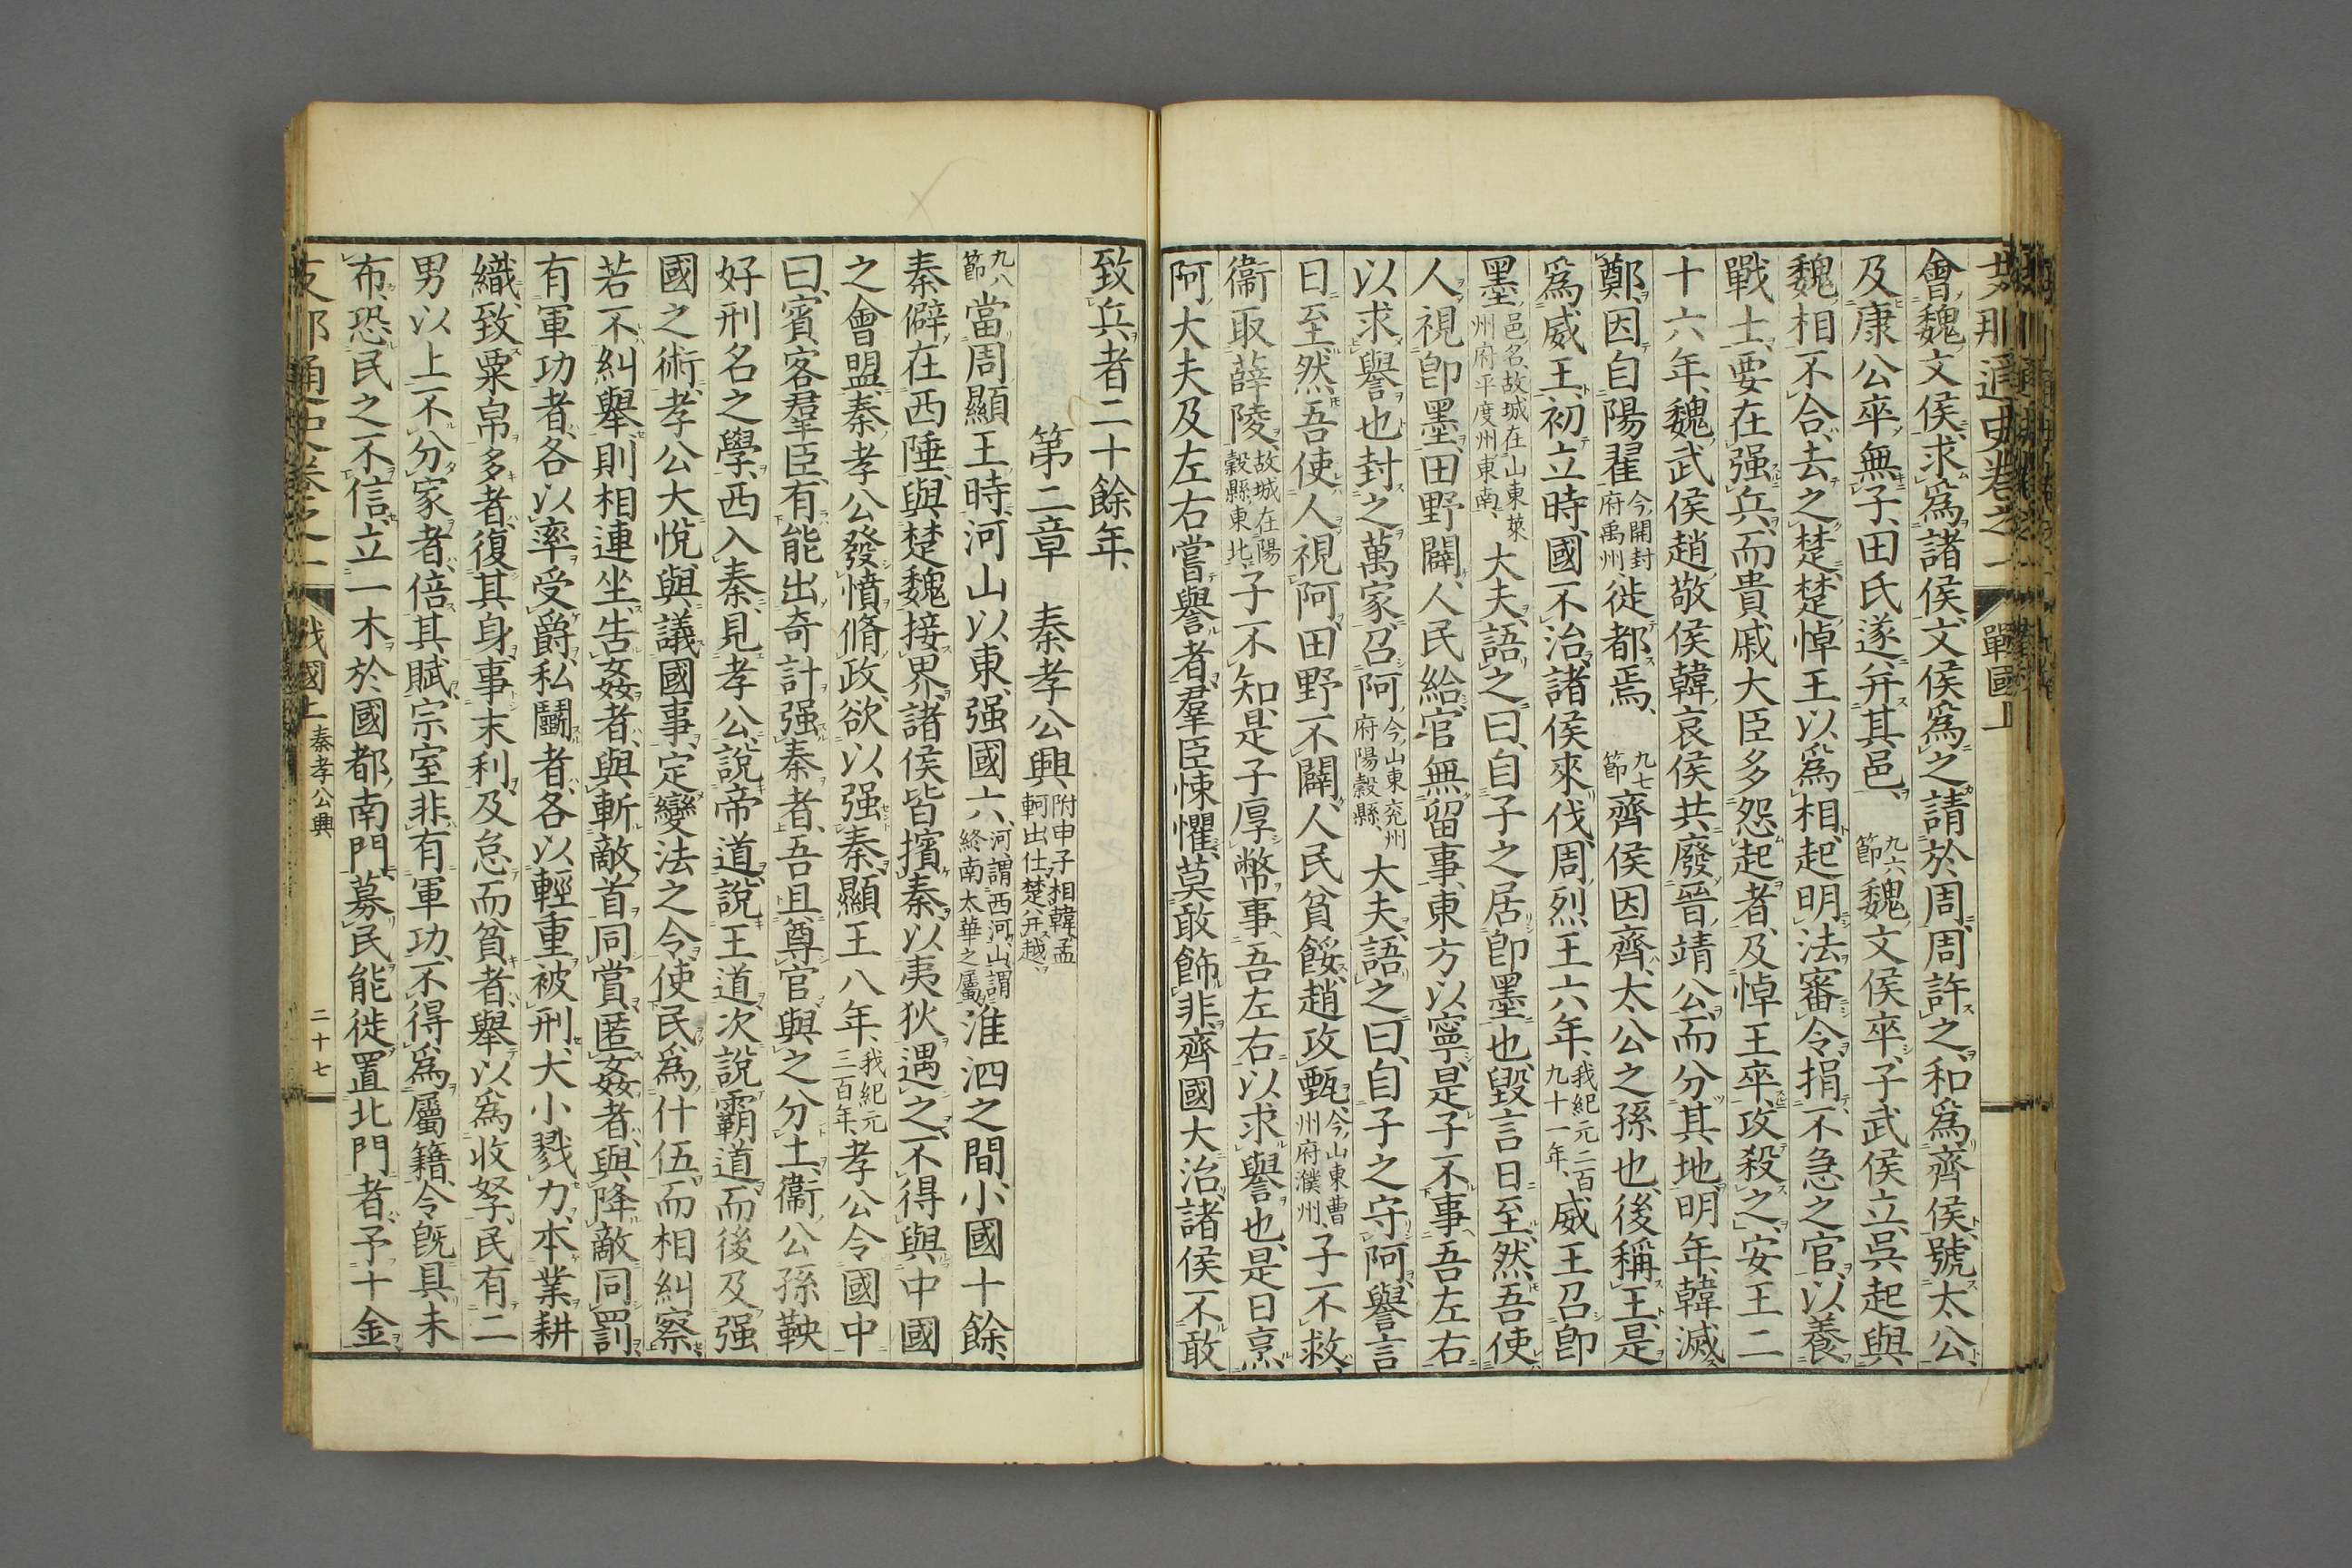 支那通史卷之一 戰國上
會魏文侯、求爲諸侯、文侯爲之請於周、周許之、和爲齊侯、號太公、
及康公卒、無子、田氏遂并其邑、九六節魏文侯卒、子武侯立、吳起與
魏相不合、去之楚、楚悼王以爲相、起明法審令、捐不急之官、以養
戰士、要在强兵、而貴戚大臣多怨起者、及悼王卒、攻殺之、安王二
十六年、魏武侯趙敬侯韓哀侯共廢晉靖公、而分其地、明年、韓滅
鄭、因自陽翟今開封府禹州徙都焉、九七節齊侯因齊、太公之孫也、後稱王、是
爲威王、初立時、國不治、諸侯來伐、周烈王六年、我紀元二百九十一年、威王召卽
墨邑名、故城在山東萊州府平度州東南、大夫、語之曰、自子之居卽墨也、毀言日至、然吾使
人視卽墨、田野闢、人民給、官無留事、東方以寧、是子不事吾左右
以求譽也、封之萬家、召阿今山東兗州府陽穀縣、大夫、語之曰、自子之守阿、譽言
日至、然吾使人視阿、田野不闢、人民貧餒、趙攻甄、今山東曹州府濮州、子不救、
衞取薛陵、故城在陽穀縣東北、子不知、是子厚幣事吾左右以求譽也、是日烹
阿大夫及左右嘗譽者、羣臣悚懼、莫敢飾非、齊國大治、諸侯不敢
致兵者二十餘年、
第二章 秦孝公興附申子相韓、孟軻出仕、楚并越、
九八節當周顯王時、河山以東、强國六、河謂西河、山謂終南太華之屬、淮泗之間、小國十餘、
秦僻在西陲、與楚魏接界、諸侯皆擯秦、以夷狄遇之、不得與中國
之會盟、秦孝公發憤脩政、欲以强秦、顯王八年、我紀元三百年、孝公令國中
曰、賓客羣臣、有能出奇計强秦者、吾且尊官、與之分土、衞公孫鞅
好刑名之學、西入秦、見孝公、說帝道、說王道、次說霸道、而後及强
國之術、孝公大悅、與議國事、定變法之令、使民爲什伍、而相糾察、
若不糾舉、則相連坐、告姦者、與斬敵首同賞、匿姦者、與降敵同罰、
有軍功者、各以率受爵、私鬭者、各以輕重被刑、大小戮力、本業耕
織、致粟帛多者、復其身、事末利及怠而貧者、舉以爲收孥、民有二
男以上不分家者、倍其賦、宗室非有軍功、不得爲屬籍、令旣具、未
布、恐民之不信、立一木於國都南門、募民能徙置北門者、予十金、
支那通史卷之一 戰國上 秦孝公興 二十七